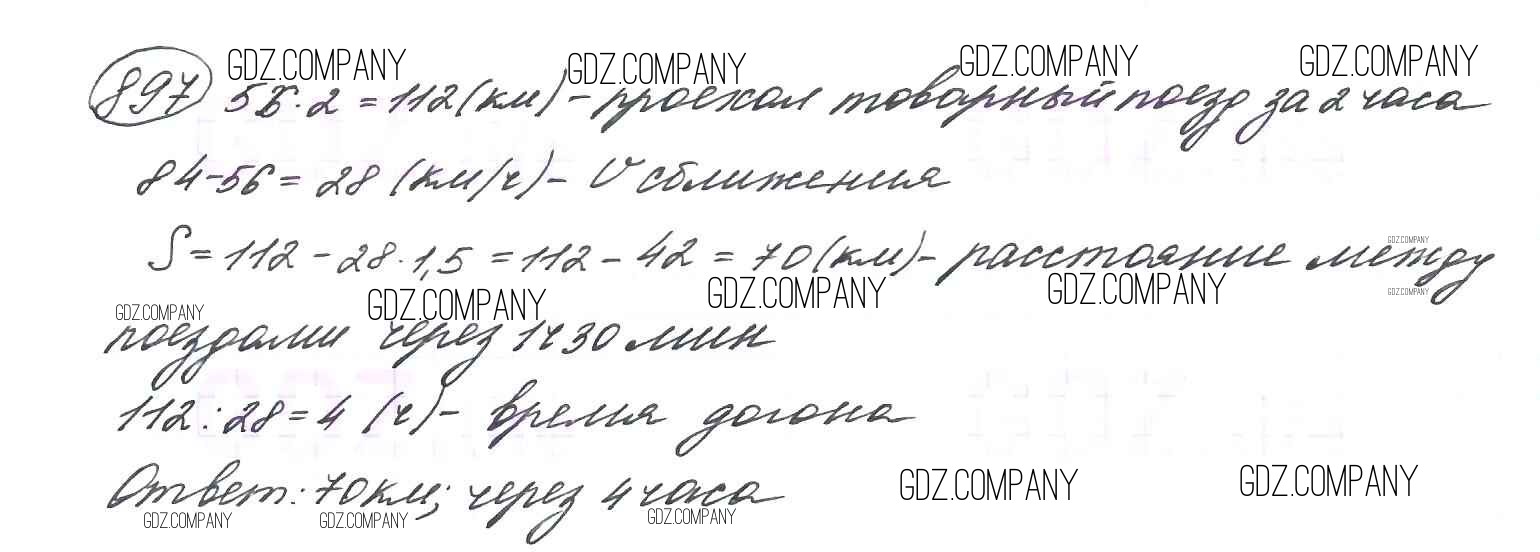 GDZ.COMPANY GDZ.COMPANY GDZ.COMPANY GDZ.COMPANY
897 56·2=112(км)-проехал товарный поезд за 2 часа
84-56=28 (км/ч)- V сближения
S=112-28·1,5=112-42=70(км)-расстояние между
GDZ.COMPANY
GDZ.COMPANY GDZ.COMPANY GDZ.COMPANY GDZ.COMPANY GDZ.COMPANY
поездами через 1ч 30 мин
112:28=4 (ч)- время догона
Ответ: 70 км; через 4 часа
GDZ.COMPANY GDZ.COMPANY
GDZ.COMPANY GDZ.COMPANY GDZ.COMPANY